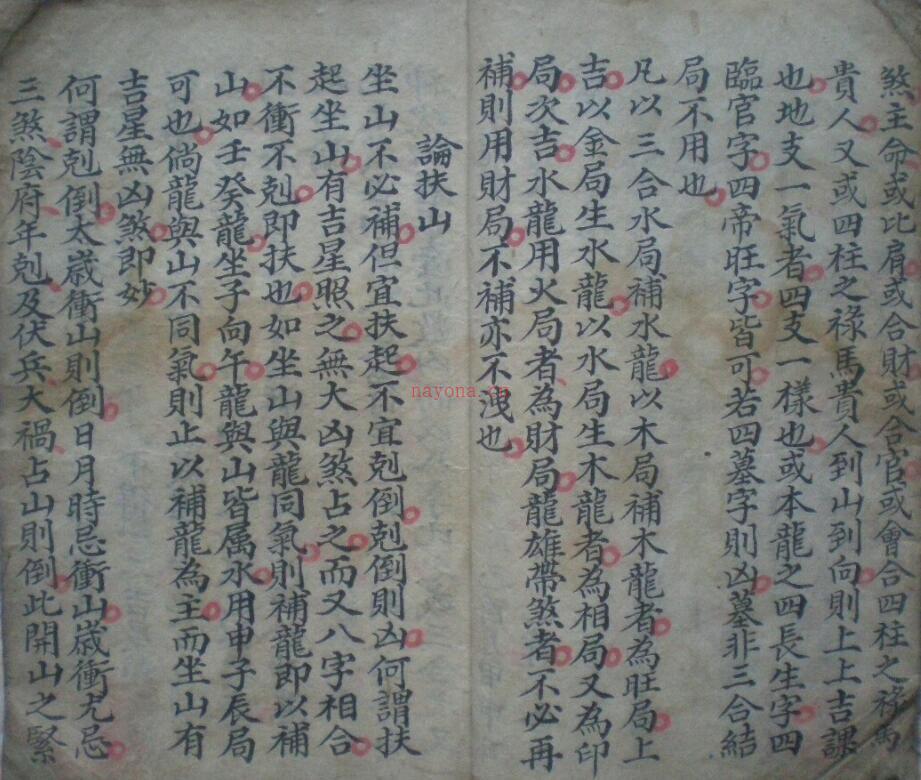 煞主命或比肩或合財或合官或會合四柱之祿馬
貴人又或四柱之祿馬貴人到山到向則上上吉課
也地支一氣者四支一樣也或本龍之四長生字四
臨官字四帝旺字皆可若四墓字則凶墓非三合結
局不用也
凡以三合水局補水龍以木局補木龍者為旺局上
吉以金局生水龍以水局生木龍者為相局又為印
局次吉水龍用火局者為財局龍雄帶煞者不必再
補則用財局不補亦不洩也
論扶山
坐山不必補但宜扶起不宜剋倒剋倒則凶何謂扶
起坐山有吉星照之無大凶煞占之而又八字相合
不衝不剋即扶也如坐山與龍同氣則補龍即以補
山如壬癸龍坐子向午龍與山皆属水用申子辰局
可也倘龍與山不同氣則止以補龍為主而坐山有
吉星無凶煞即妙
何謂剋倒太歲衝山則倒日月時忌衝山歲衝尤忌
三煞陰府年剋及伏兵大禍占山則倒此開山之緊
nayona.cn